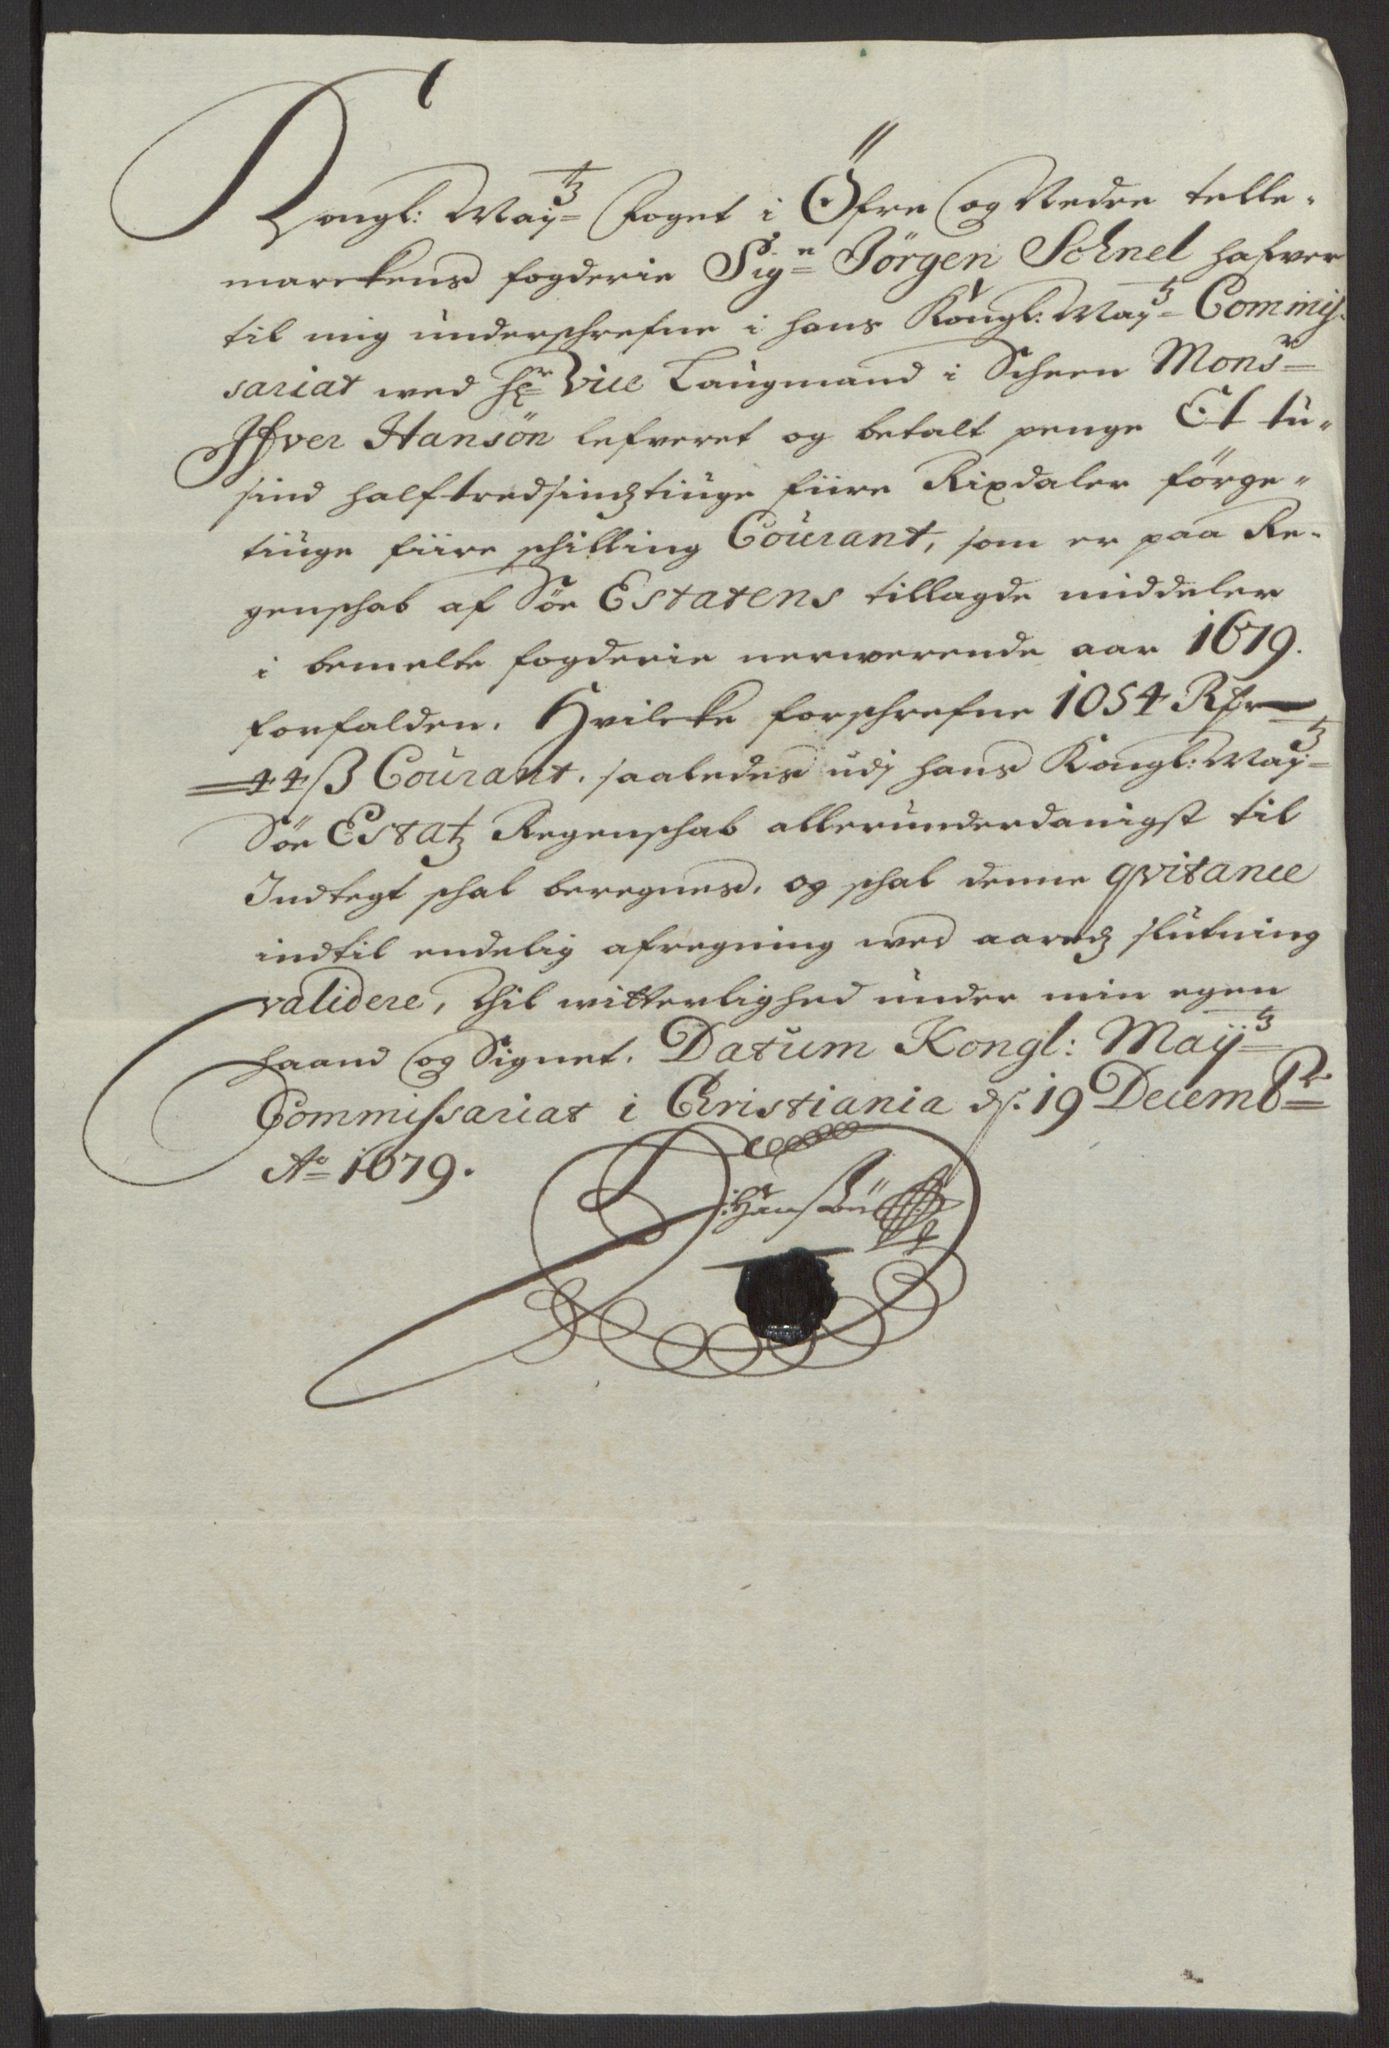 Kongl: May:tz Foget i Öfre og Nedre telle-
marckens fogderie Sign Jörgen Schnel hafver
til mig underschrefne i hans Kongl: May:tz Commis-
sariat wed Hr Vice Laugmand i Scheen Monsr
Ifver Hansön lefveret og betalt penge Et tu-
sind halftredsindztiuge fiire Rixdaler förge-
tiuge fiire schilling Courant, som er paa Re-
genschab af Söe Estatens tillagde middeler
i bemelte fogderie nerwerende aar 1679.
forfalden. Hvilcke forschrefne 1054 Rdr
44 ß Courant. saaledes udj hans Kongl: May:tz
Söe Estatz Regenschab allerunderdanigst til
Indtegt schal beregnes. og schal denne qvitance
indtil endelig afregning wed aaretz slutning
validere, Thil witterlighed under min egen
haand og Signet. Datum Kongl: Maytz
Commissariat i Christiania ds. 19 Decembr
Ao 1679.